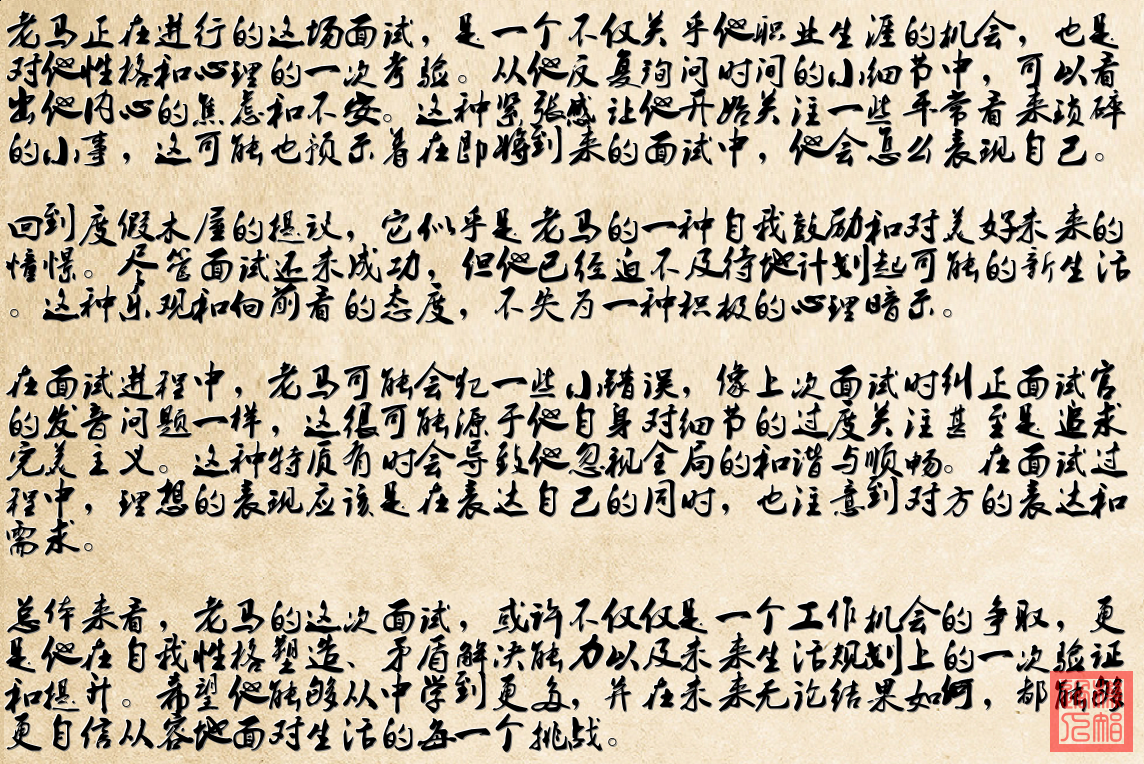 老马正在进行的这场面试，是一个不仅关乎他职业生涯的机会，也是
对他性格和心理的一次考验。从他反复询问时间的小细节中，可以看
出他内心的焦虑和不安。这种紧张感让他开始关注一些平常看来琐碎
的小事，这可能也预示着在即将到来的面试中，他会怎么表现自己。
回到度假木屋的提议，它似乎是老马的一种自我鼓励和对美好未来的
憧憬。尽管面试还未成功，但他已经迫不及待地计划起可能的新生活
。这种乐观和向前看的态度，不失为一种积极的心理暗示。
在面试进程中，老马可能会犯一些小错误，像上次面试时纠正面试官
的发音问题一样，这很可能源于他自身对细节的过度关注甚至是追求
完美主义。这种特质有时会导致他忽视全局的和谐与顺畅。在面试过
程中，理想的表现应该是在表达自己的同时，也注意到对方的表达和
需求。
总体来看，老马的这次面试，或许不仅仅是一个工作机会的争取，更
是他在自我性格塑造、矛盾解决能力以及未来生活规划上的一次验证
和提升。希望他能够从中学到更多，并在未来无论结果如何，都能够
更自信从容地面对生活的每一个挑战。